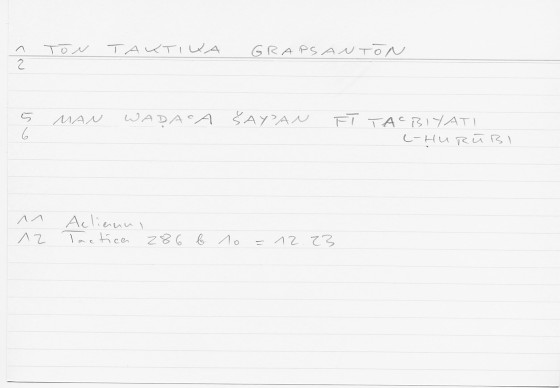 1 TŌN TAKTIKA GRAPSANTŌN
2
5 MAN WAḌAʿA ŠAYʾAN FĪ TAʿBIYATI
6 L-ḤURŪBI
11 Aelianus
12 Tactica 286 B 10 = 12 23